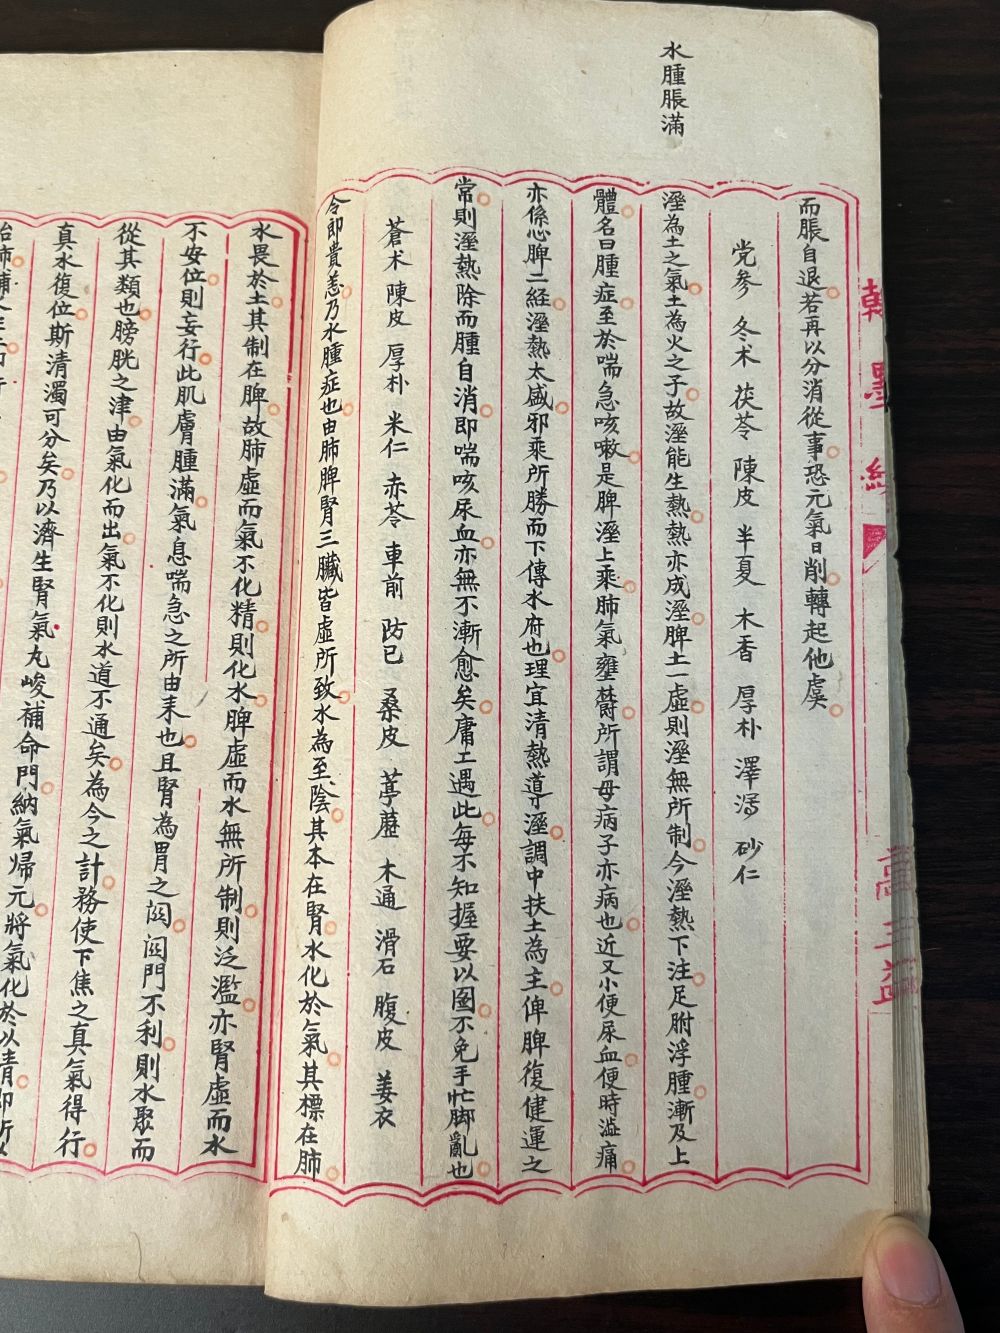 水腫脹滿
而脹自退若再以分消從事恐元氣日削轉起他虞
党參 冬术 茯苓 陳皮 半夏 木香 厚朴 澤瀉 砂仁
溼為土之氣土為火之子故溼能生熱熱亦成溼脾土一虛則溼無所制今溼熱下注足胕浮腫漸及上
體名曰腫症至於喘急咳嗽是脾溼上乘肺氣壅欝所謂母病子亦病也近又小便尿血便時溢痛
亦係心脾二経溼熱太盛邪乘所勝而下傳水府也理宜清熱導溼調中扶土為主俾脾復健運之
常則溼熱除而腫自消即喘咳尿血亦無不漸愈矣庸工遇此每不知握要以圖不免手忙脚亂也
蒼术 陳皮 厚朴 米仁 赤苓 車前 防已 桑皮 葶藶 木通 滑石 腹皮 姜衣
令郎貴恙乃水腫症也由肺脾腎三臟皆虛所致水為至陰其本在腎水化於氣其標在肺
水畏於土其制在脾故肺虛而氣不化精則化水脾虛而水無所制則泛濫亦腎虛而水
不安位則妄行此肌膚腫滿氣息喘急之所由来也且腎為胃之闗闗門不利則水聚而
從其類也膀胱之津由氣化而出氣不化則水道不通矣為今之計務使下焦之真氣得行
真水復位斯清濁可分矣乃以濟生腎氣丸峻補命門納氣歸元將氣化於以清即所以
翰墨緣
高玉益